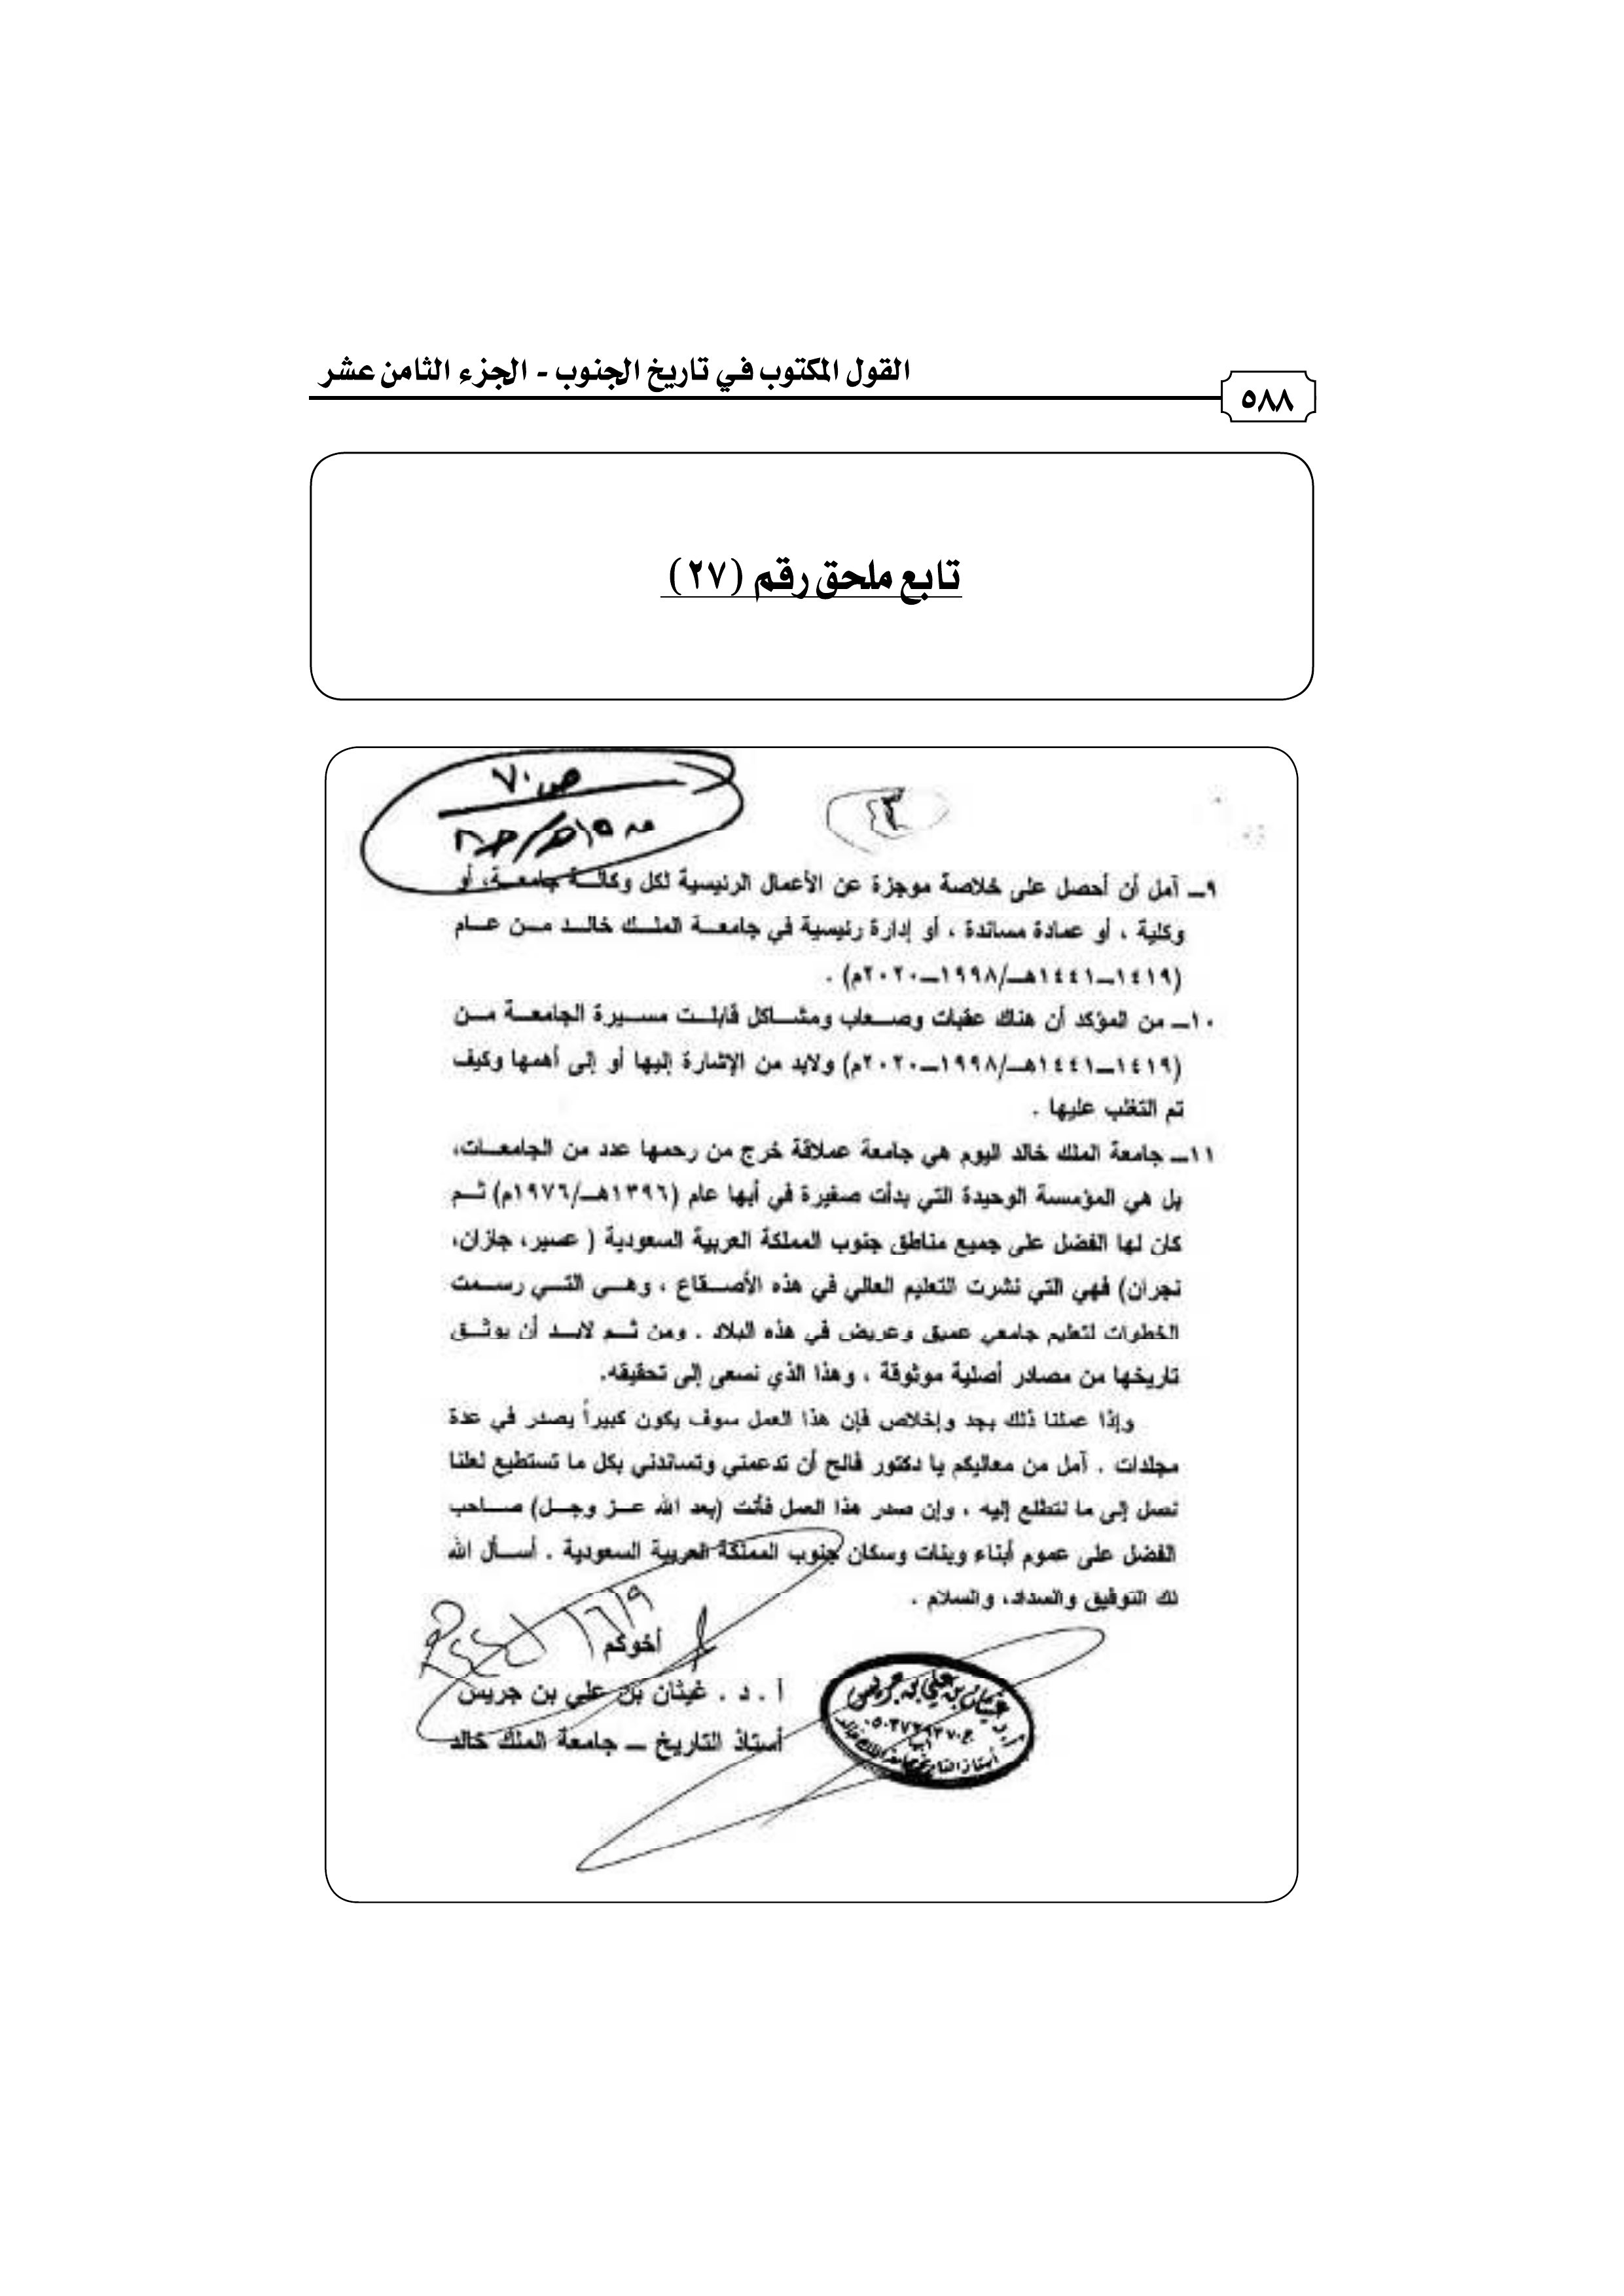 القول المكتوب في تاريخ الجنوب - الجزء الثامن عشر
٥٨٨
تابع ملحق رقم (٢٧)
ص ٧٠
٩ــ آمل أن أحصل على خلاصة موجزة عن الأعمال الرئيسية لكل وكالة جامعة، أو
وكلية ، أو عمادة مساندة ، أو إدارة رئيسية في جامعة الملك خالد من عام
(١٤١٩ــ١٤٤١هـ/١٩٩٨ــ٢٠٢٠م) .
١٠ــ من المؤكد أن هناك عقبات وصعاب ومشاكل قابلت مسيرة الجامعة من
(١٤١٩ــ١٤٤١هـ/١٩٩٨ــ٢٠٢٠م) ولابد من الإشارة إليها أو إلى أهمها وكيف
تم التغلب عليها .
١١ــ جامعة الملك خالد اليوم هي جامعة عملاقة خرج من رحمها عدد من الجامعات،
بل هي المؤسسة الوحيدة التي بدأت صغيرة في أبها عام (١٣٩٦هـ/١٩٧٦م) ثم
كان لها الفضل على جميع مناطق جنوب المملكة العربية السعودية ( عسير، جازان،
نجران) فهي التي نشرت التعليم العالي في هذه الأصقاع ، وهي التي رسمت
الخطوات لتعليم جامعي عميق وعريض في هذه البلاد . ومن ثم لابد أن يوثق
تاريخها من مصادر أصلية موثوقة ، وهذا الذي نسعى إلى تحقيقه.
وإذا عملنا ذلك بجد وإخلاص فإن هذا العمل سوف يكون كبيراً يصدر في عدة
مجلدات . آمل من معاليكم يا دكتور فالح أن تدعمني وتساندني بكل ما تستطيع لعلنا
نصل إلى ما نتطلع إليه ، وإن صدر هذا العمل فأنت (بعد الله عز وجل) صاحب
الفضل على عموم أبناء وبنات وسكان جنوب المملكة العربية السعودية . أسأل الله
لك التوفيق والسداد، والسلام .
أخوكم
أ . د . غيثان بن علي بن جريس
أستاذ التاريخ ــ جامعة الملك خالد
أ.د. غيثان بن علي بن جريس